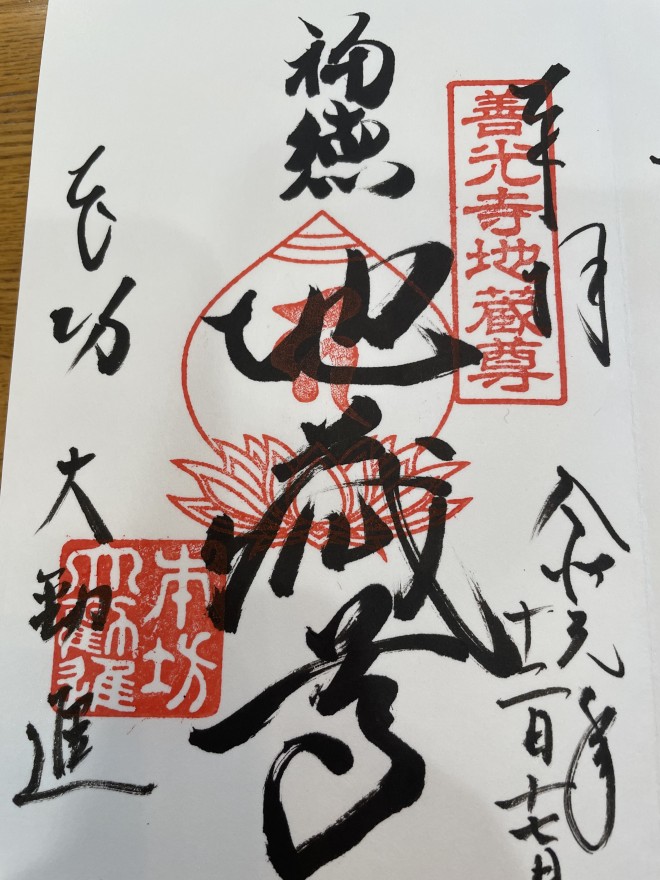 奉拝
善光寺地蔵尊
令和元年
十二月十七日
福徳
地蔵尊
本坊
大勧進
本坊
大勧進